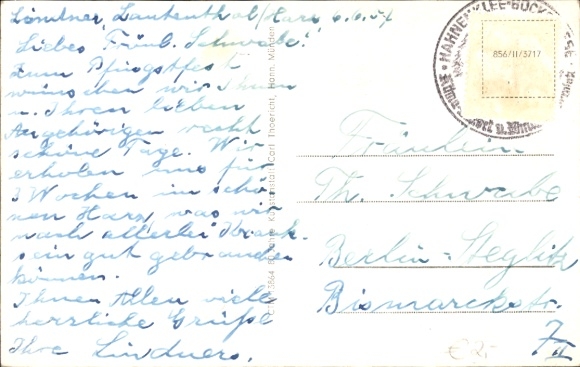 Lindner, Lautenthal/Harz 6.6.57
Liebes Fräul. Schwabe!
Zum Pfingstfest
wünschen wir Ihnen
u. Ihren lieben
Angehörigen recht
schöne Tage. Wir
erholen uns für
3 Wochen im schö-
nen Harz, was wir
nach allerlei
sein gut gebrauchen
können.
Ihnen Allen viele
herzliche Grüße
Ihre Lindners.
Carl Thoericht, Hann. Münden
HAHNENKLEE-BOCKSWIESE
856/II/3717
Fräulein
Th. Schwabe
Berlin-Steglitz
Bismarckstr.
7 II
€ 2,-